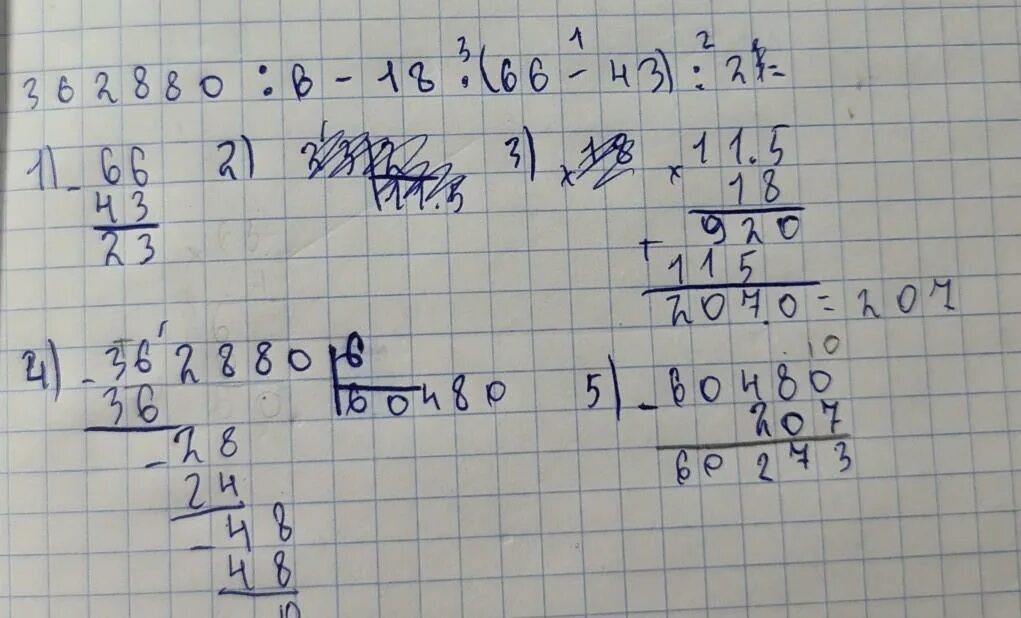 3 1 2
362880 : 6 - 18 · (66 - 43) : 2 =
1) - 66
43
23
2)
11.5
3) × 18 × 11.5
18
920
+ 115
207.0 = 207
4) - 362880 | 6
60480
36
- 28
24
- 48
48
0
5) - 60480
10
207
60273